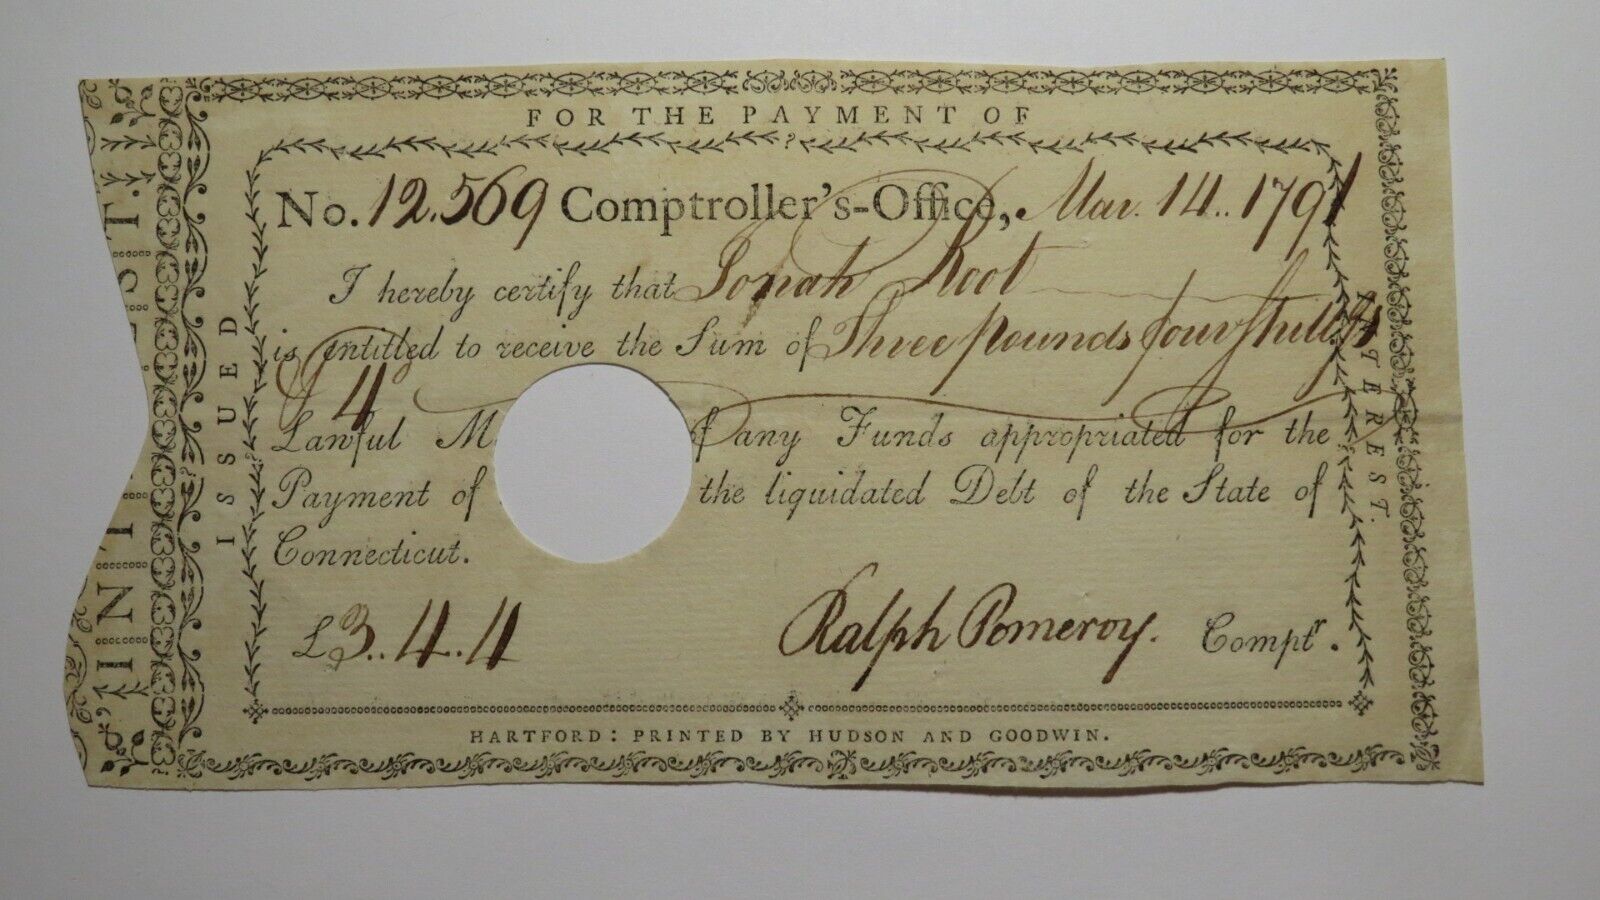 FOR THE PAYMENT OF
No. 12.569 Comptroller's-Office, Mar. 14.. 1791
I hereby certify that Jonah Root
is entitled to receive the Sum of Three pounds four shillgs
& 4d
Lawful M f any Funds appropriated for the
Payment of the liquidated Debt of the State of
Connecticut.
£3..4.4 Ralph Pomeroy. Comptr.
HARTFORD: PRINTED BY HUDSON AND GOODWIN.
ISSUED
INTEREST.
INT EST.